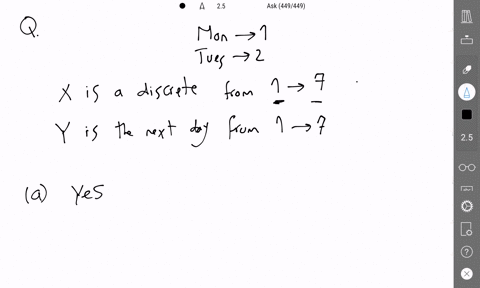 2.5 Ask (449/449)
Q.
Mon → 1
Tues → 2
X is a discrete from 1 → 7
Y is the next day from 1 → 7
(a) Yes
2.5